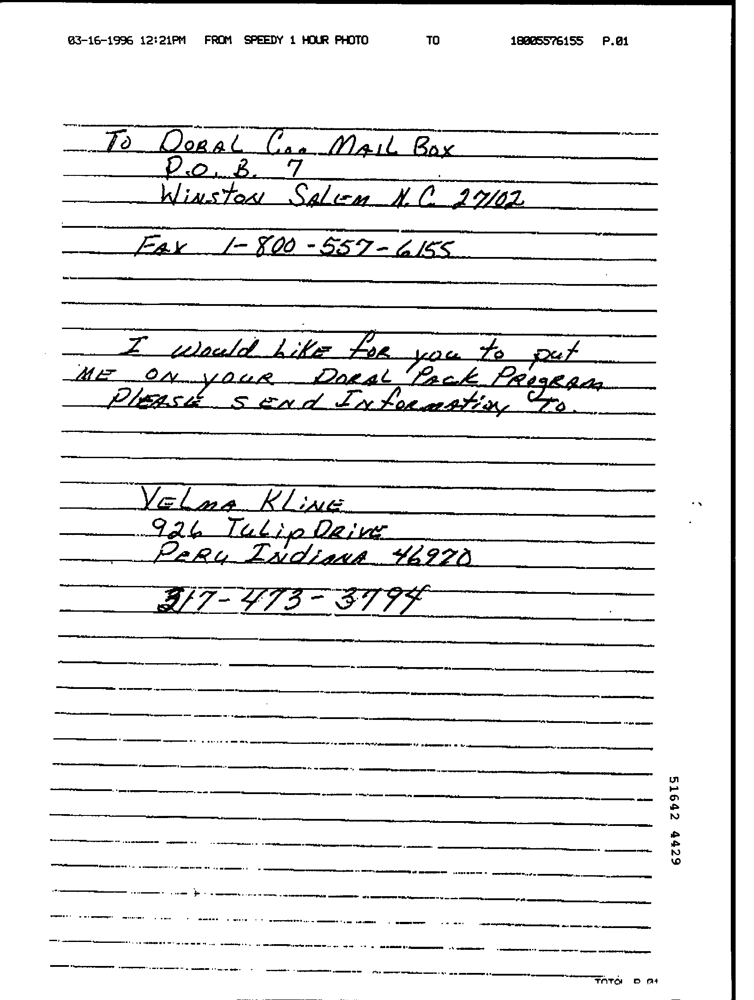 03-16-1996 12:21PM FROM SPEEDY 1 HOUR PHOTO TO 18005576155 P.01
TO DORAL Coo MAIL BOX
P.O. B. 7
WINSTON SALEM N.C. 27102
FAX 1-800-557-6155
I would LIKE FOR you to put
ME ON YOUR DORAL PACK PROGRAM
PLEASE SEND INFORMATION TO.
VELMA KLINE
926 TULIP DRIVE
PERU INDIANA 46970
317-473-3794
51642 4429
TOTAL P.01